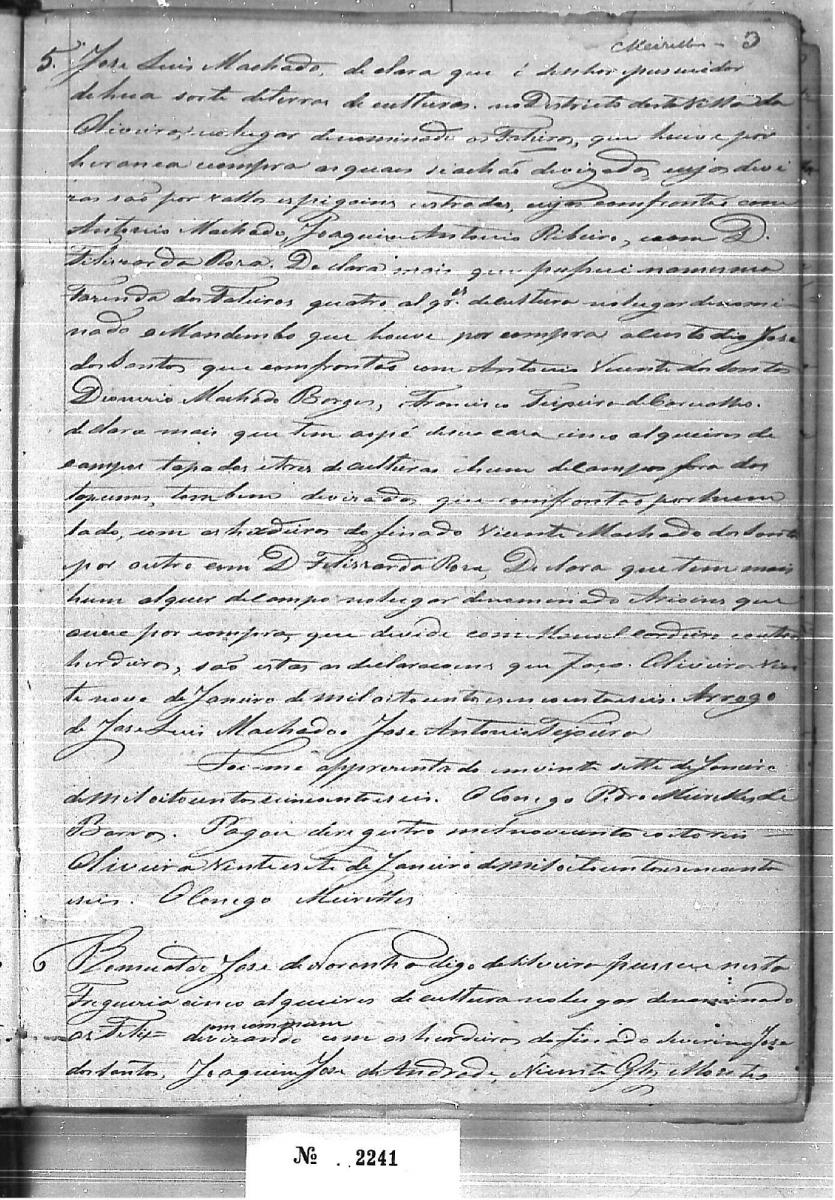 Meirelles - 3
5. Jose Luis Machado, declara que é senhor, possuidor
de hua sorte de terras de culturas no Districto desta Villa da
Oliveira, no lugar denominado os Faleiros, que houve por
herança e compra as quaes se achão devizadas, cujas devi
zas são por vallos espigoens estradas, cujas comfrontão com
Antonio Machado, Joaquim Antonio Ribeiro, e com D.
Felizarda Roza. Declara mais que possue na mesma
Fazenda dos Faleiros quatro alqr.es de cultura no lugar denomi-
nado o Mandembo que houve por compra a Custodio Jose
dos Santos que comfrontão com Antonio Vicente dos Santos
Dionizio Machado Borges, Francisco Teixeira de Carvalho.
declara mais que tem ao pé de sua caza cinco alqueires de
campos tapados e tres de culturas e hum de campos fora dos
tapumes, tambem devizados que comfrontão por hum
lado, com os herdeiros do finado Vicente Machado dos Santos
por outro com D Felizarda Roza, Declara que tem mais
hum alquer de campo no lugar denominado que
ouve por compra, que devide com Manoel Cordeiro e outros
herdeiros, são estas as declaracoens que faço. Oliveira vin
te nove de Janeiro de mil oito centos e sincoenta e seis. Arrogo
de Jose Luis Machado Jose Antonio Teixeira
Foi-me appresentado em vinte sette de Janeiro
de mil oito centos e cincoenta e seis. O Conego Pedro Meirelles de
Barros. Pagou de registro mil novecentos e oito reis -
Oliveira vinte e sete de Janeiro de mil oito centos e sincoenta
e seis. O Conego Meirelles
6 Romualdo Jose de Noronha digo de Oliveira possue nesta
Freguezia cinco alqueires de cultura no lugar denominado
os Felix = em commum
devizando com os herdeiros do finado Severino Jose
dos Santos, Joaquim Jose de Andrade, Vicente Glz Martins
№ 2241